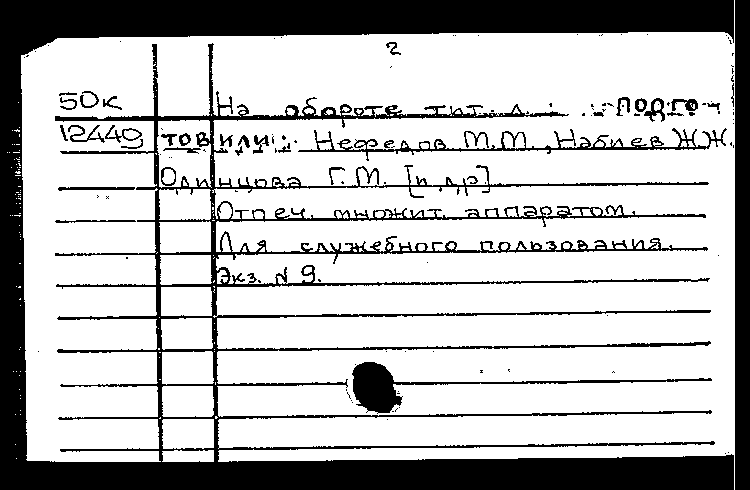 2
50к На обороте тит. л. : подго-
12449 товили: Нефедов М.М., Набиев Ж.Ж.
Одинцова Г.М. [и др]
Отпеч. множит. аппаратом.
Для служебного пользования.
Экз. N 9.